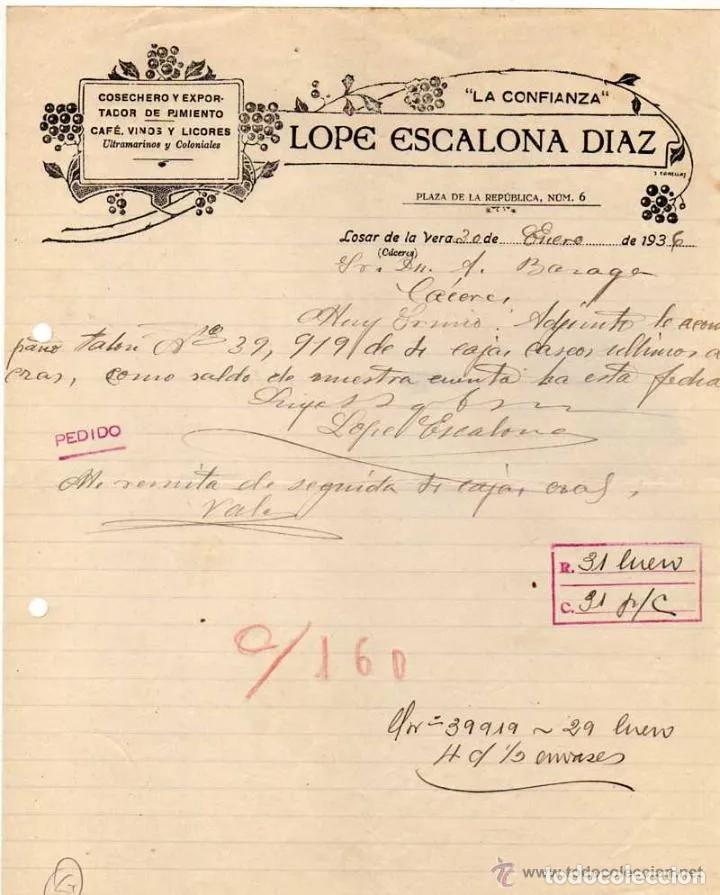 COSECHERO Y EXPOR-
TADOR DE PIMIENTO
CAFÉ, VINOS Y LICORES
Ultramarinos y Coloniales
"LA CONFIANZA"
LOPE ESCALONA DIAZ
PLAZA DE LA REPÚBLICA, NÚM. 6
Losar de la Vera 30 de Enero de 1936
(Cáceres)
Sr. Dn. A.
Cáceres
Muy Sr mio: Adjunto le acom
paño talón Nº 39,919 de cajas cascos ultimos
como saldo de nuestra cuenta ha esta fecha
Lope Escalona
PEDIDO
Me remita de seguida cajas
Vale
R. 31 Enero
C. 31 p/C
c/160
39919 ~ 29 Enero
4 c/ envases
www.todocoleccion.net
todocoleccion